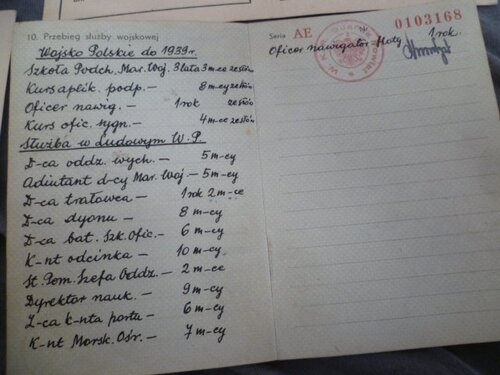 10. Przebieg służby wojskowej
Wojsko Polskie do 1939 r.
Szkoła Podch. Mar. Woj. 3 lata 3 m-ce zestów
Kurs aplik. podp. – 8 m-cy zestów
Oficer nawig. – 1 rok zestów
Kurs ofic. sygn. – 4 m-ce zestów
Służba w Ludowym W.P.
D-ca oddz. wych. – 5 m-cy
Adiutant d-cy Mar. Woj – 5 m-cy
D-ca trałowca – 1 rok 2 m-ce
D-ca dyonu – 8 m-cy
D-ca bat. Szk. Ofic. – 6 m-cy
K-nt odcinka – 10 m-cy
St. Pom. Szefa Oddz. – 2 m-ce
Dyrektor nauk. – 9 m-cy
Z-ca k-nta portu – 6 m-cy
K-nt Morsk. Ośr. – 7 m-cy
Seria AE 0103168
Oficer nawigator floty 1 rok.